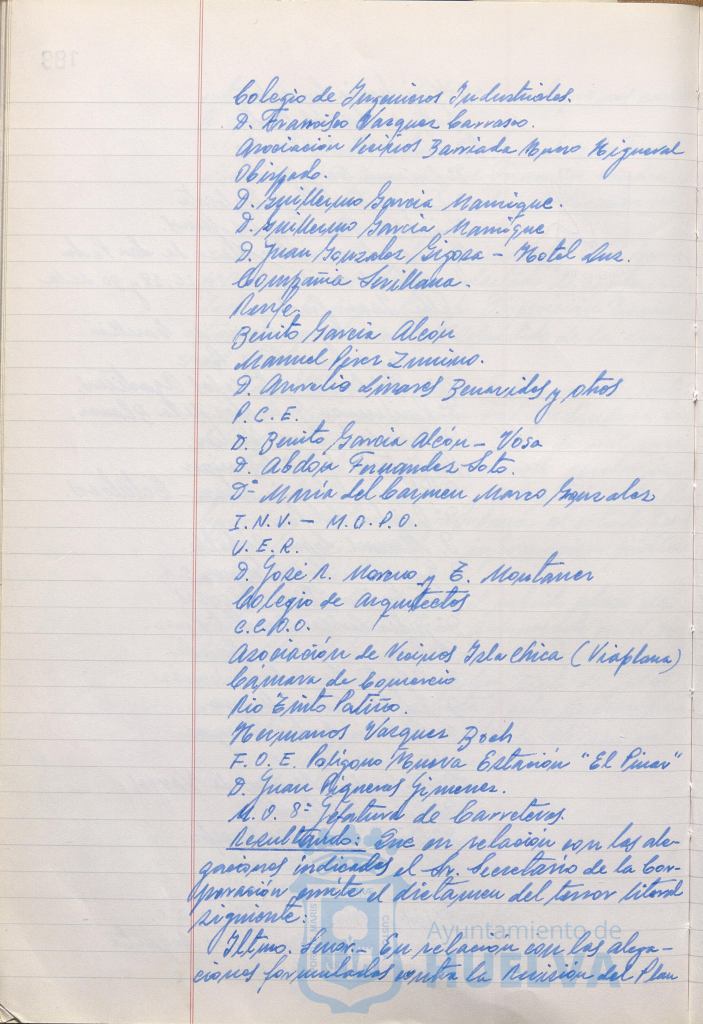 Colegio de Ingenieros Industriales.
D. Francisco Vazquez Carrasco.
Asociación Vecinos Barriada Huerto Higueral
Obispado.
D. Guillermo García Manrique.
D. Guillermo García Manrique
D. Juan Gonzalez Gigosa - Hotel Luz.
Compañia Sevillana.
Renfe.
Benito García Alcón
Manuel Pérez Zunino.
D. Aurelio Linares Benavides y otros
P.C.E.
D. Benito García Alcón - Vosa
D. Abdon Fernandez Soto.
Dª María del Carmen Marco Gonzalez
I.N.V. - M.O.P.O.
U.E.R.
D. José R. Moreno y E. Montaner
Colegio de Arquitectos
CC.OO.
Asociación de Vecinos Isla Chica (Viaplana)
Cámara de Comercio
Rio Tinto Patiño.
Hermanos Vazquez Boch
F.O.E. Polígono Nueva Estación "El Pinar"
D. Juan Rigueras Gimenez.
M.O. 8ª Jefatura de Carreteras.
Resultando: Que en relación con las ale-
gaciones indicadas el Sr. Secretario de la Cor-
poración emite el dictamen del tenor literal
siguiente:
Iltmo. Senor.- En relación con las alega-
ciones formuladas contra la Revisión del Plan
183
Ayuntamiento de
HUELVA